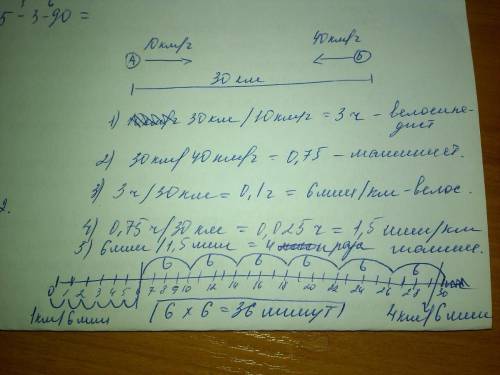 5 - 3 - 90 =
10км/г 40км/г
А Б
30 км
1) 30км/10км/г = 3ч - велосипе-
дист
2) 30км/40км/г = 0,75 - машинист.
3) 3ч/30км = 0,1г = 6мин/км - велос.
2.
4) 0,75ч/30км = 0,025ч = 1,5 мин/км
5) 6мин/1,5мин = 4 раза машин.
6 6 6 6 6 6
0 1 2 3 4 5 6 7 8 9 10 12 14 16 18 20 22 24 26 28 30
1км/6мин 6 x 6 = 36 минут 4км/6мин